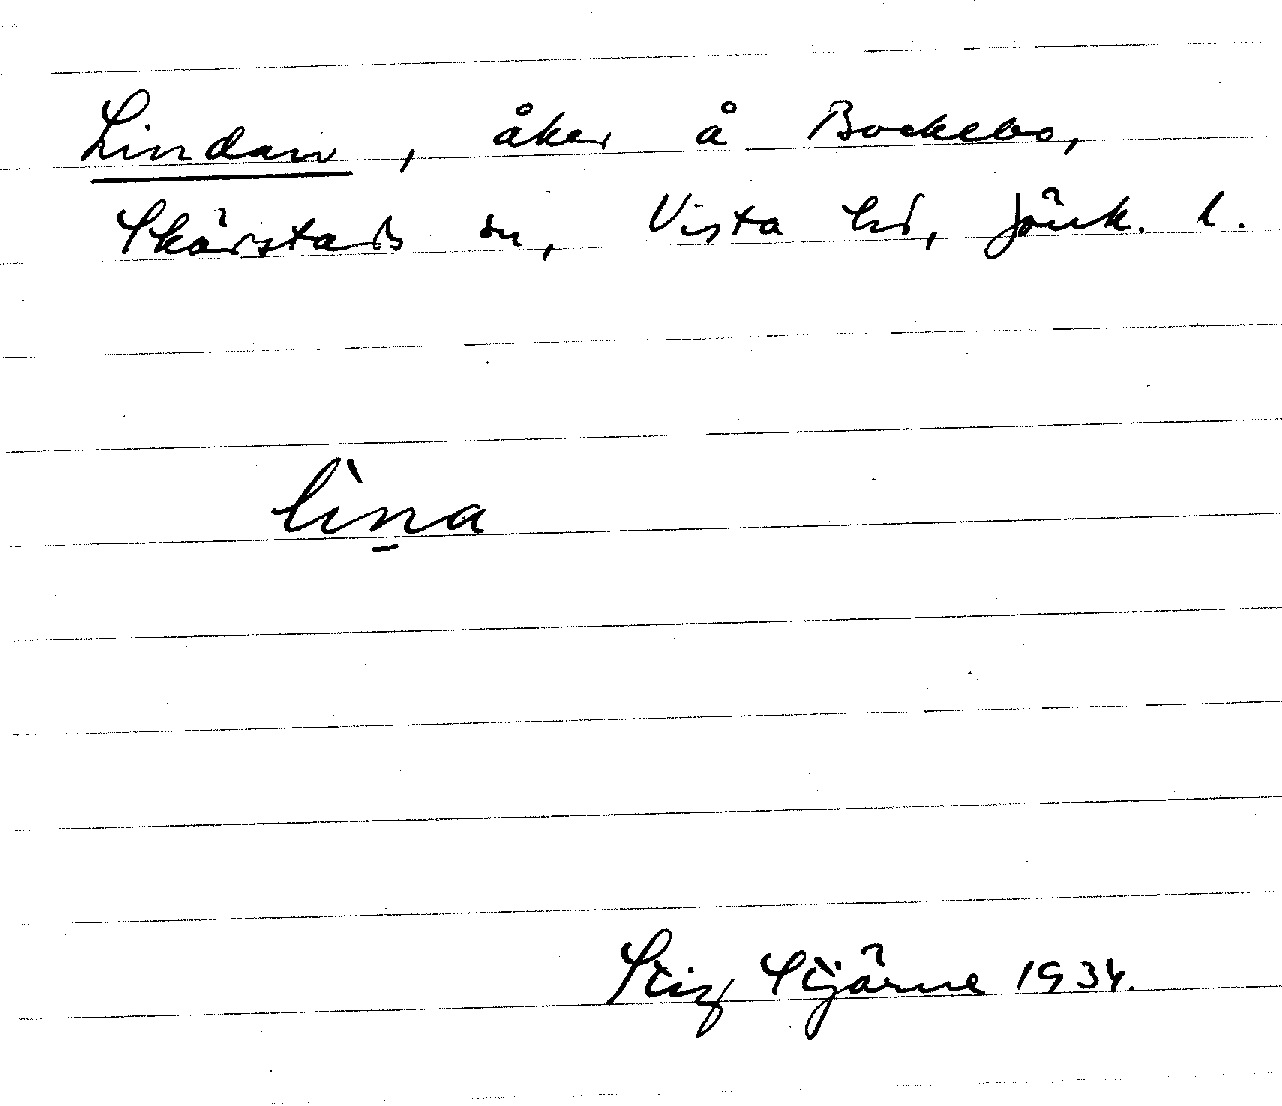 Lindan, åker å Bockebo,
Skärstads sn, Vista hd, Jönk. l.
lìn̲a
Stig Stjärne 1934.